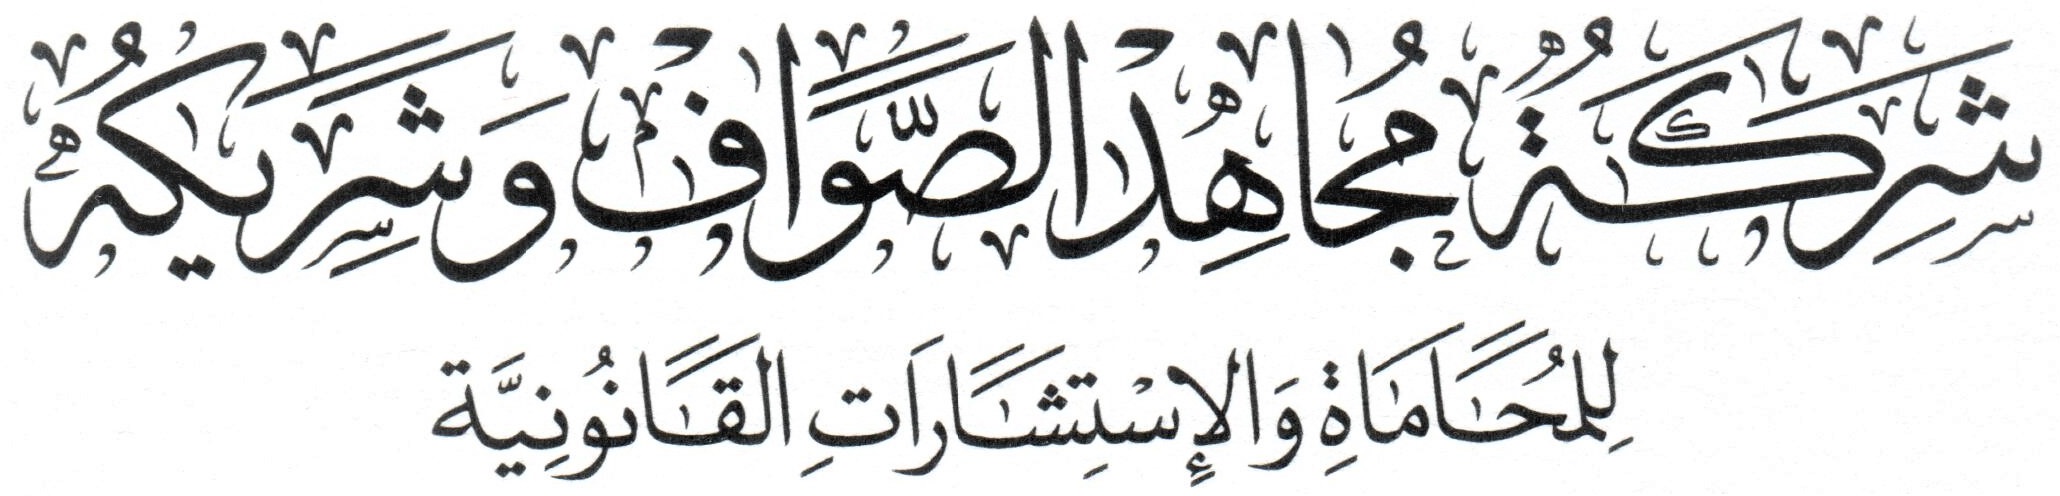 شَرِكَةُ مُجَاهِدْ الصَّوَّافْ وَشَرِيكُهُ
لِلمُحَامَاةِ وَالإِسْتِشَارَاتِ القَانُونِيَّة